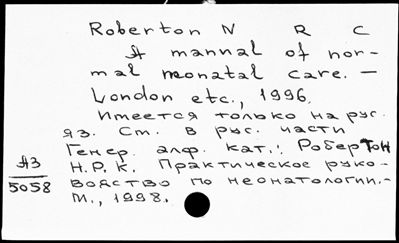 Roberton N R C
A mannal of nor-
mal neonatal care. —
London etc., 1996.
Имеется только на рус.
яз. См. в рус. части
Генер. алф. кат.: Робертон
Н.Р.К. Практическое руко-
водство по неонатологии.-
М., 1998.
А3
5058